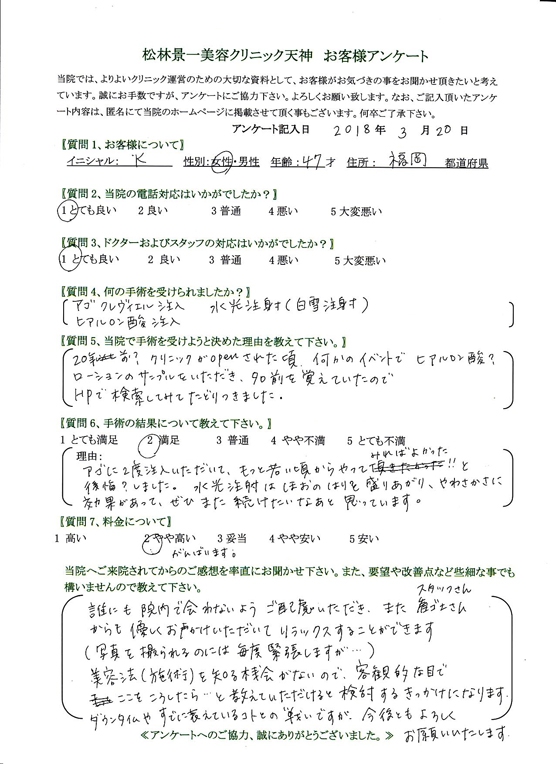 松林景一美容クリニック天神　お客様アンケート
当院では、よりよいクリニック運営のための大切な資料として、お客様がお気づきの事をお聞かせ頂きたいと考え
ています。誠にお手数ですが、アンケートにご協力下さい。よろしくお願い致します。なお、ご記入頂いたアンケ
ート内容は、匿名にて当院のホームページに掲載させて頂く事もございます。何卒ご了承下さい。
アンケート記入日　2018年　3月20日
〖質問1、お客様について〗
イニシャル：　K　性別：女性・男性　年齢：47才　住所：　福岡　都道府県
〖質問2、当院の電話対応はいかがでしたか？〗
1 とても良い　2 良い　3 普通　4 悪い　5 大変悪い
〖質問3、ドクターおよびスタッフの対応はいかがでしたか？〗
1 とても良い　2 良い　3 普通　4 悪い　5 大変悪い
〖質問4、何の手術を受けられましたか？〗
アゴ クレヴィエル注入　水光注射（白雪注射）
ヒアルロン酸注入
〖質問5、当院で手術を受けようと決めた理由を教えて下さい。〗
20年前？クリニックがopenされた頃、何かのイベントで ヒアルロン酸？
ローションのサンプルをいただき、名前を覚えていたので
HPで検索してみてたどりつきました。
〖質問6、手術の結果について教えて下さい。〗
1 とても満足　2 満足　3 普通　4 やや不満　5 とても不満
理由：
みればよかった
アゴに2度注入いただいて、もっと若い頃からやって!!と
後悔？しました。水光注射は ほおのはりと盛りあがり、やわらかさに
効果があって、ぜひまた続けたいなあと思っています。
〖質問7、料金について〗
1 高い　2 やや高い　3 妥当　4 やや安い　5 安い
がんばります。
当院へご来院されてからのご感想を率直にお聞かせ下さい。また、要望や改善点など些細な事でも
構いませんので教えて下さい。
スタッフさん
誰にも院内で会わないようご配慮いただき、また
からも優しくお声かけいただいてリラックスすることができます
（写真を撮られるのには毎度緊張しますが…）
美容法（施術）を知る機会がないので、客観的な目で
ここをこうしたら…と教えていただけると検討するきっかけになります。
ダウンタイムや すでに教えているコトとの戦いですが、今後ともよろしく
お願いいたします。
≪アンケートへのご協力、誠にありがとうございました。≫